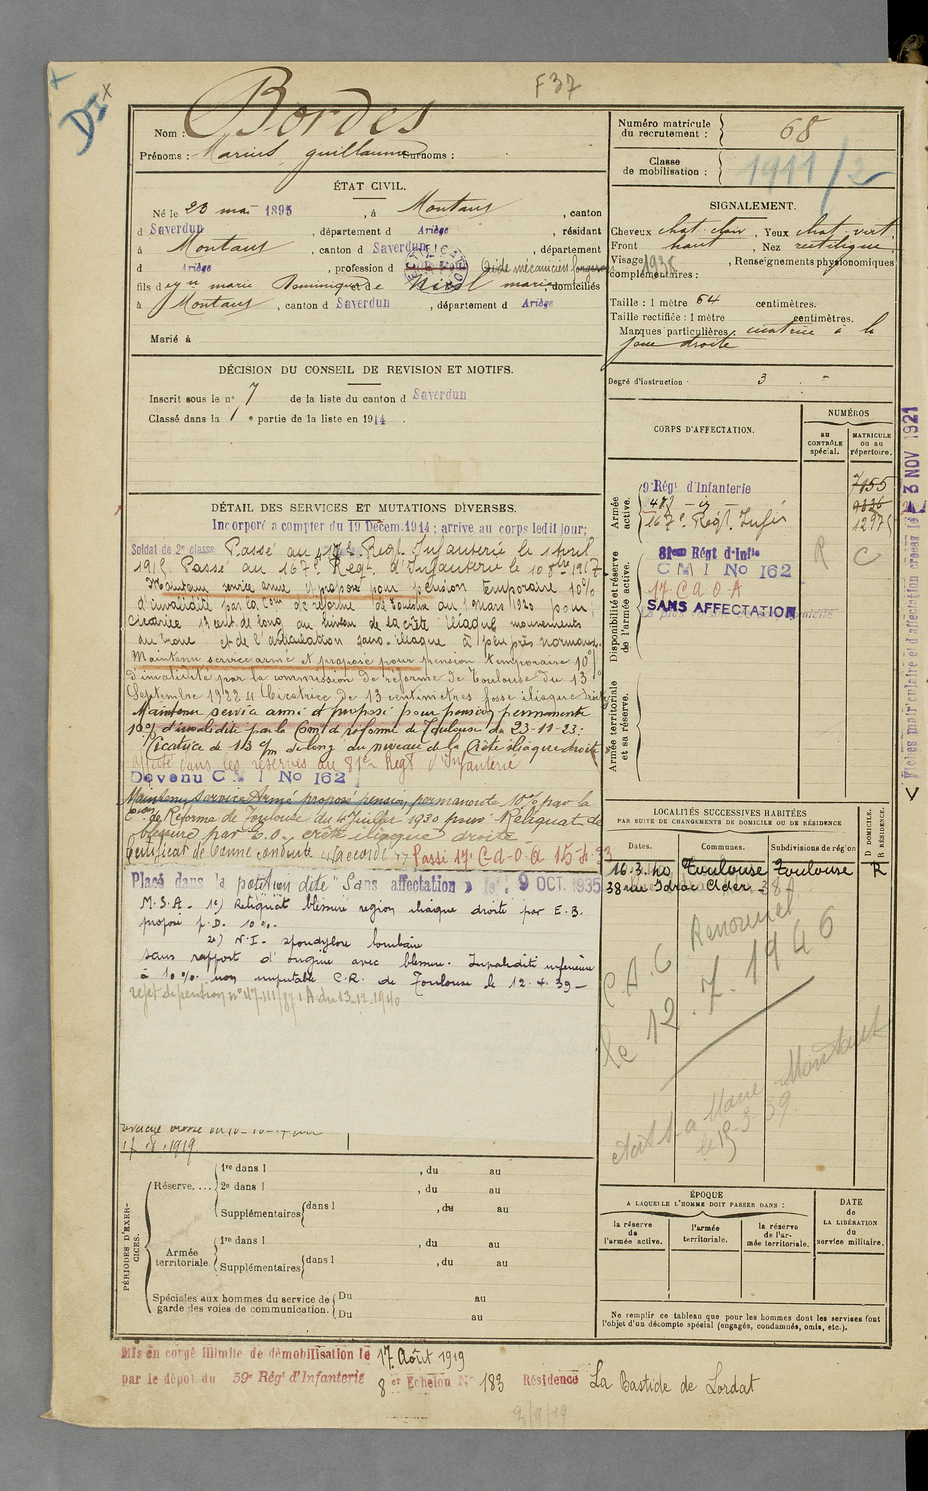 F37
DI
Nom : Bordes
Prénoms : Marius guillaume Surnoms :
ÉTAT CIVIL.
Né le 23 mai 1895, à Montaut, canton
d Saverdun, département d Ariège, résidant
à Montaut, canton d Saverdun, département
d Ariège, profession d aide mécanicien
fils d Dominique et de marie domiciliés
à Montaut, canton d Saverdun, département d Ariège
Marié à
DÉCISION DU CONSEIL DE REVISION ET MOTIFS.
Inscrit sous le n° 7 de la liste du canton d Saverdun
Classé dans la 1e partie de la liste en 1914.
DÉTAIL DES SERVICES ET MUTATIONS DIVERSES.
Incorporé a compter du 19 Décem. 1914 ; arrive au corps ledit jour ;
Soldat de 2e classe Passé au Régt. Infanterie le 1 avril
191 . Passé au 167e Régt. d'Infanterie le 10 8bre 1917
Maintenu service armé et proposé pour pension temporaire 10%
d'invalidité par la Com de réforme de Toulouse du 1 mars 1920 pour
Cicatrice 13 cent. de long au niveau de la crête iliaque mouvements
du tronc et de l'articulation sacro-iliaque à peu près normaux
Maintenu service armé et proposé pour pension temporaire 10%
d'invalidité par la commission de réforme de Toulouse du 13
Septembre 1922 Cicatrice de 13 centimètres fosse iliaque droite
Maintenu service armé et proposé pour pension permanente
10% d'invalidité par la Com de réforme de Toulouse du 23-11-23 :
Cicatrice de 13 c/m de long au niveau de la Crête iliaque droite
Affecté dans les réserves au 81e Régt d'Infanterie
Devenu C M I No 162
Maintenu Service Armé proposé pension permanente 10% par la
Con de Réforme de Toulouse du 4 Juillet 1930 pour Reliquat de
blessure par E.O. crête iliaque droite
Certificat de bonne conduite accordé Passé 17e C-d-O-A 15-4-33
Placé dans la position dite "Sans affectation" le 9 OCT. 1935
M.S.A - 1e) Reliquat blessure region iliaque droite par E.B.
proposé p.D. 10%.
2e) N.I - spondylose lombaire
sans rapport d'origine avec blessure. Invalidité inférieure
à 10%. non imputable C.R. de Toulouse le 12.4.39 -
rejet de pension du 13-12-1940
17.8.1919
PÉRIODES D'EXERCICES.
Réserve....
1re dans l , du au
2e dans l , du au
Supplémentaires dans l , du au
Armée territoriale.
1re dans l , du au
Supplémentaires dans l , du au
Spéciales aux hommes du service de garde des voies de communication.
Du au
Du au
Mis en congé illimité de démobilisation le 17 Août 1919
par le dépôt du 59e Régt d'Infanterie 8er Echelon N° 183 Résidence La Bastide de Lordat
9/9/19
Numéro matricule du recrutement : 68
Classe de mobilisation : 1911/2
SIGNALEMENT.
Cheveux chat. clair, Yeux chat. vert
Front haut, Nez rectiligne
Visage , Renseignements physionomiques
complémentaires :
1935
Taille : 1 mètre 64 centimètres.
Taille rectifiée : 1 mètre centimètres.
Marques particulières : cicatrice à la
joue droite
Degré d'instruction : 3
CORPS D'AFFECTATION.
NUMÉROS
au CONTRÔLE spécial.
MATRICULE ou au répertoire.
Armée active.
9e Régt d'Infanterie 7155
9336
167e Régt. Infie 12975
Disponibilité et réserve de l'armée active.
81eme Régt d'Infie R C
C M I No 162
17 C-d-O-A
SANS AFFECTATION
Armée territoriale et sa réserve.
3 NOV 1921
Fiches matriculaire et d'affectation créées le
LOCALITÉS SUCCESSIVES HABITÉES
PAR SUITE DE CHANGEMENTS DE DOMICILE OU DE RÉSIDENCE
Dates. Communes. Subdivisions de région D DOMICILE. R RÉSIDENCE.
16.3.40 Toulouse Toulouse R
38 rue Isdrac Ader
C.A.C Renouvel
le 12.7.1946
Montaut
le 15-3-39
ÉPOQUE
A LAQUELLE L'HOMME DOIT PASSER DANS :
la réserve de l'armée active.
l'armée territoriale.
la réserve de l'armée territoriale.
DATE de LA LIBÉRATION du service militaire.
Ne remplir ce tableau que pour les hommes dont les services font
l'objet d'un décompte spécial (engagés, condamnés, omis, etc.).